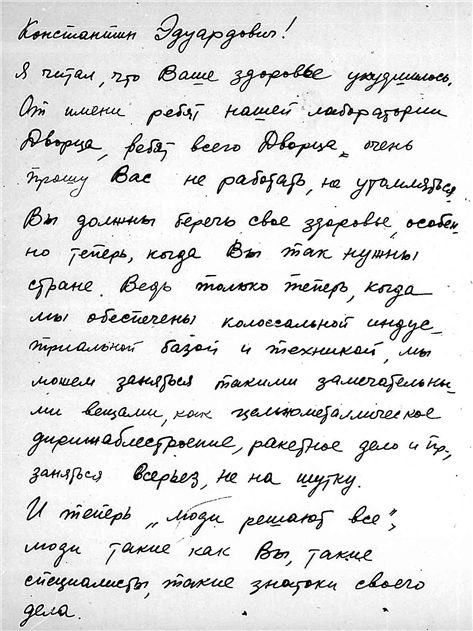 Константин Эдуардович!
Я читал, что Ваше здоровье ухудшилось.
От имени ребят нашей лаборатории
Дворца, ребят всего Дворца очень
прошу Вас не работать, не утомляться.
Вы должны беречь свое здоровье, особен-
но теперь, когда Вы так нужны
стране. Ведь только теперь, когда
мы обеспечены колоссальной индус-
триальной базой и техникой, мы
можем заняться такими замечательны-
ми вещами, как цельнометаллическое
дирижаблестроение, ракетное дело и пр.,
заняться всерьез, не на шутку.
И теперь „люди решают все",
люди такие как Вы, такие
специалисты, такие знатоки своего
дела.